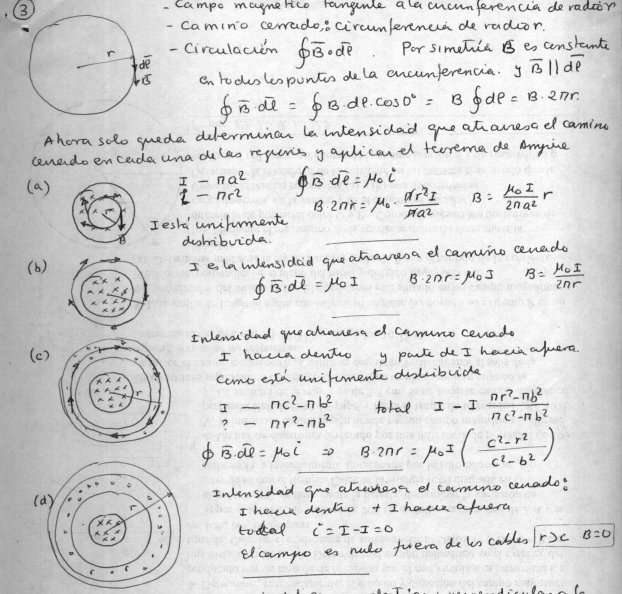 ③ - Campo magnético tangente a la circunferencia de radio r
- Camino cerrado: circunferencia de radio r.
- Circulación ∮B̄·dl̄. Por simetría B es constante
r dl̄ B̄
en todos los puntos de la circunferencia. y B̄ ∥ dl̄
∮ B̄·dl̄ = ∮ B·dl·cos0° = B ∮ dl = B·2πr.
Ahora solo queda determinar la intensidad que atraviesa el camino
cerrado en cada una de las regiones y aplicar el teorema de Ampère
(a) I — πa² ∮ B̄·dl̄ = μ₀ i
i — πr² B·2πr = μ₀·πr²I/πa² B = μ₀I/2πa² r
B
I está uniformemente
distribuida.
(b) I es la intensidad que atraviesa el camino cerrado
∮ B̄·dl̄ = μ₀ I B·2πr = μ₀ I B = μ₀I/2πr
Intensidad que atraviesa el camino cerrado
(c) I hacia dentro y parte de I hacia afuera.
r
Como está uniformemente distribuida
I — πc²-πb² total I - I (πr²-πb²)/(πc²-πb²)
? — πr²-πb²
∮ B̄·dl̄ = μ₀ i ⇒ B·2πr = μ₀ I ((c²-r²)/(c²-b²))
(d) Intensidad que atraviesa el camino cerrado:
r
I hacia dentro + I hacia afuera
total i = I - I = 0
El campo es nulo fuera de los cables r>c B=0